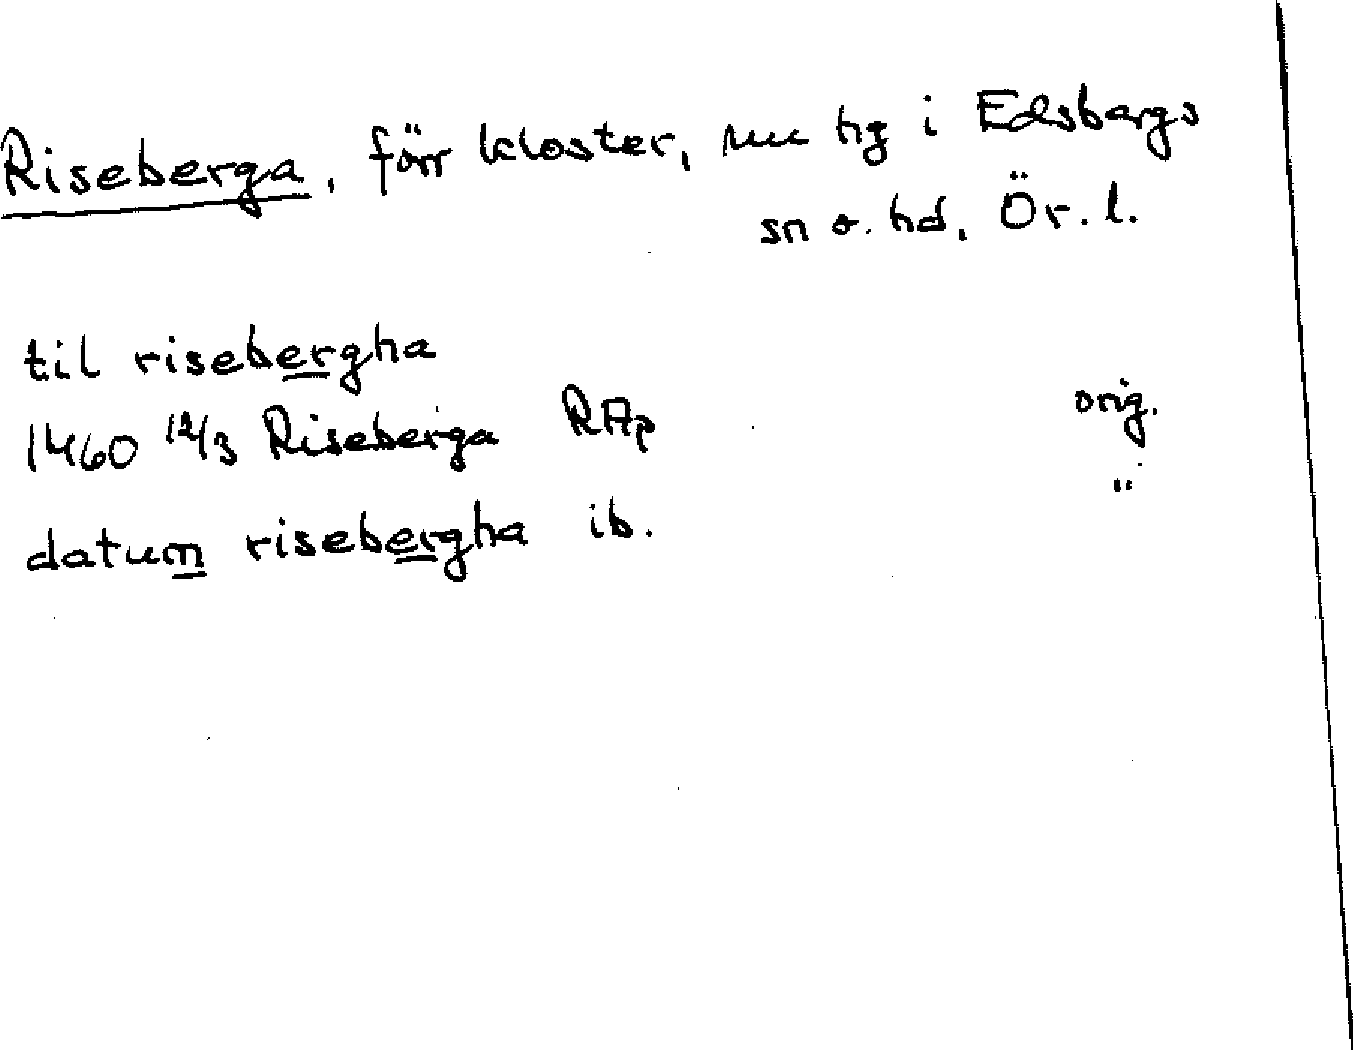 Riseberga, förr kloster, nu hg i Edsbergs
sn o. hd, Ör. l.
til risebergha
1460 12/3 Riseberga RAp orig.
datum risebergha ib. "